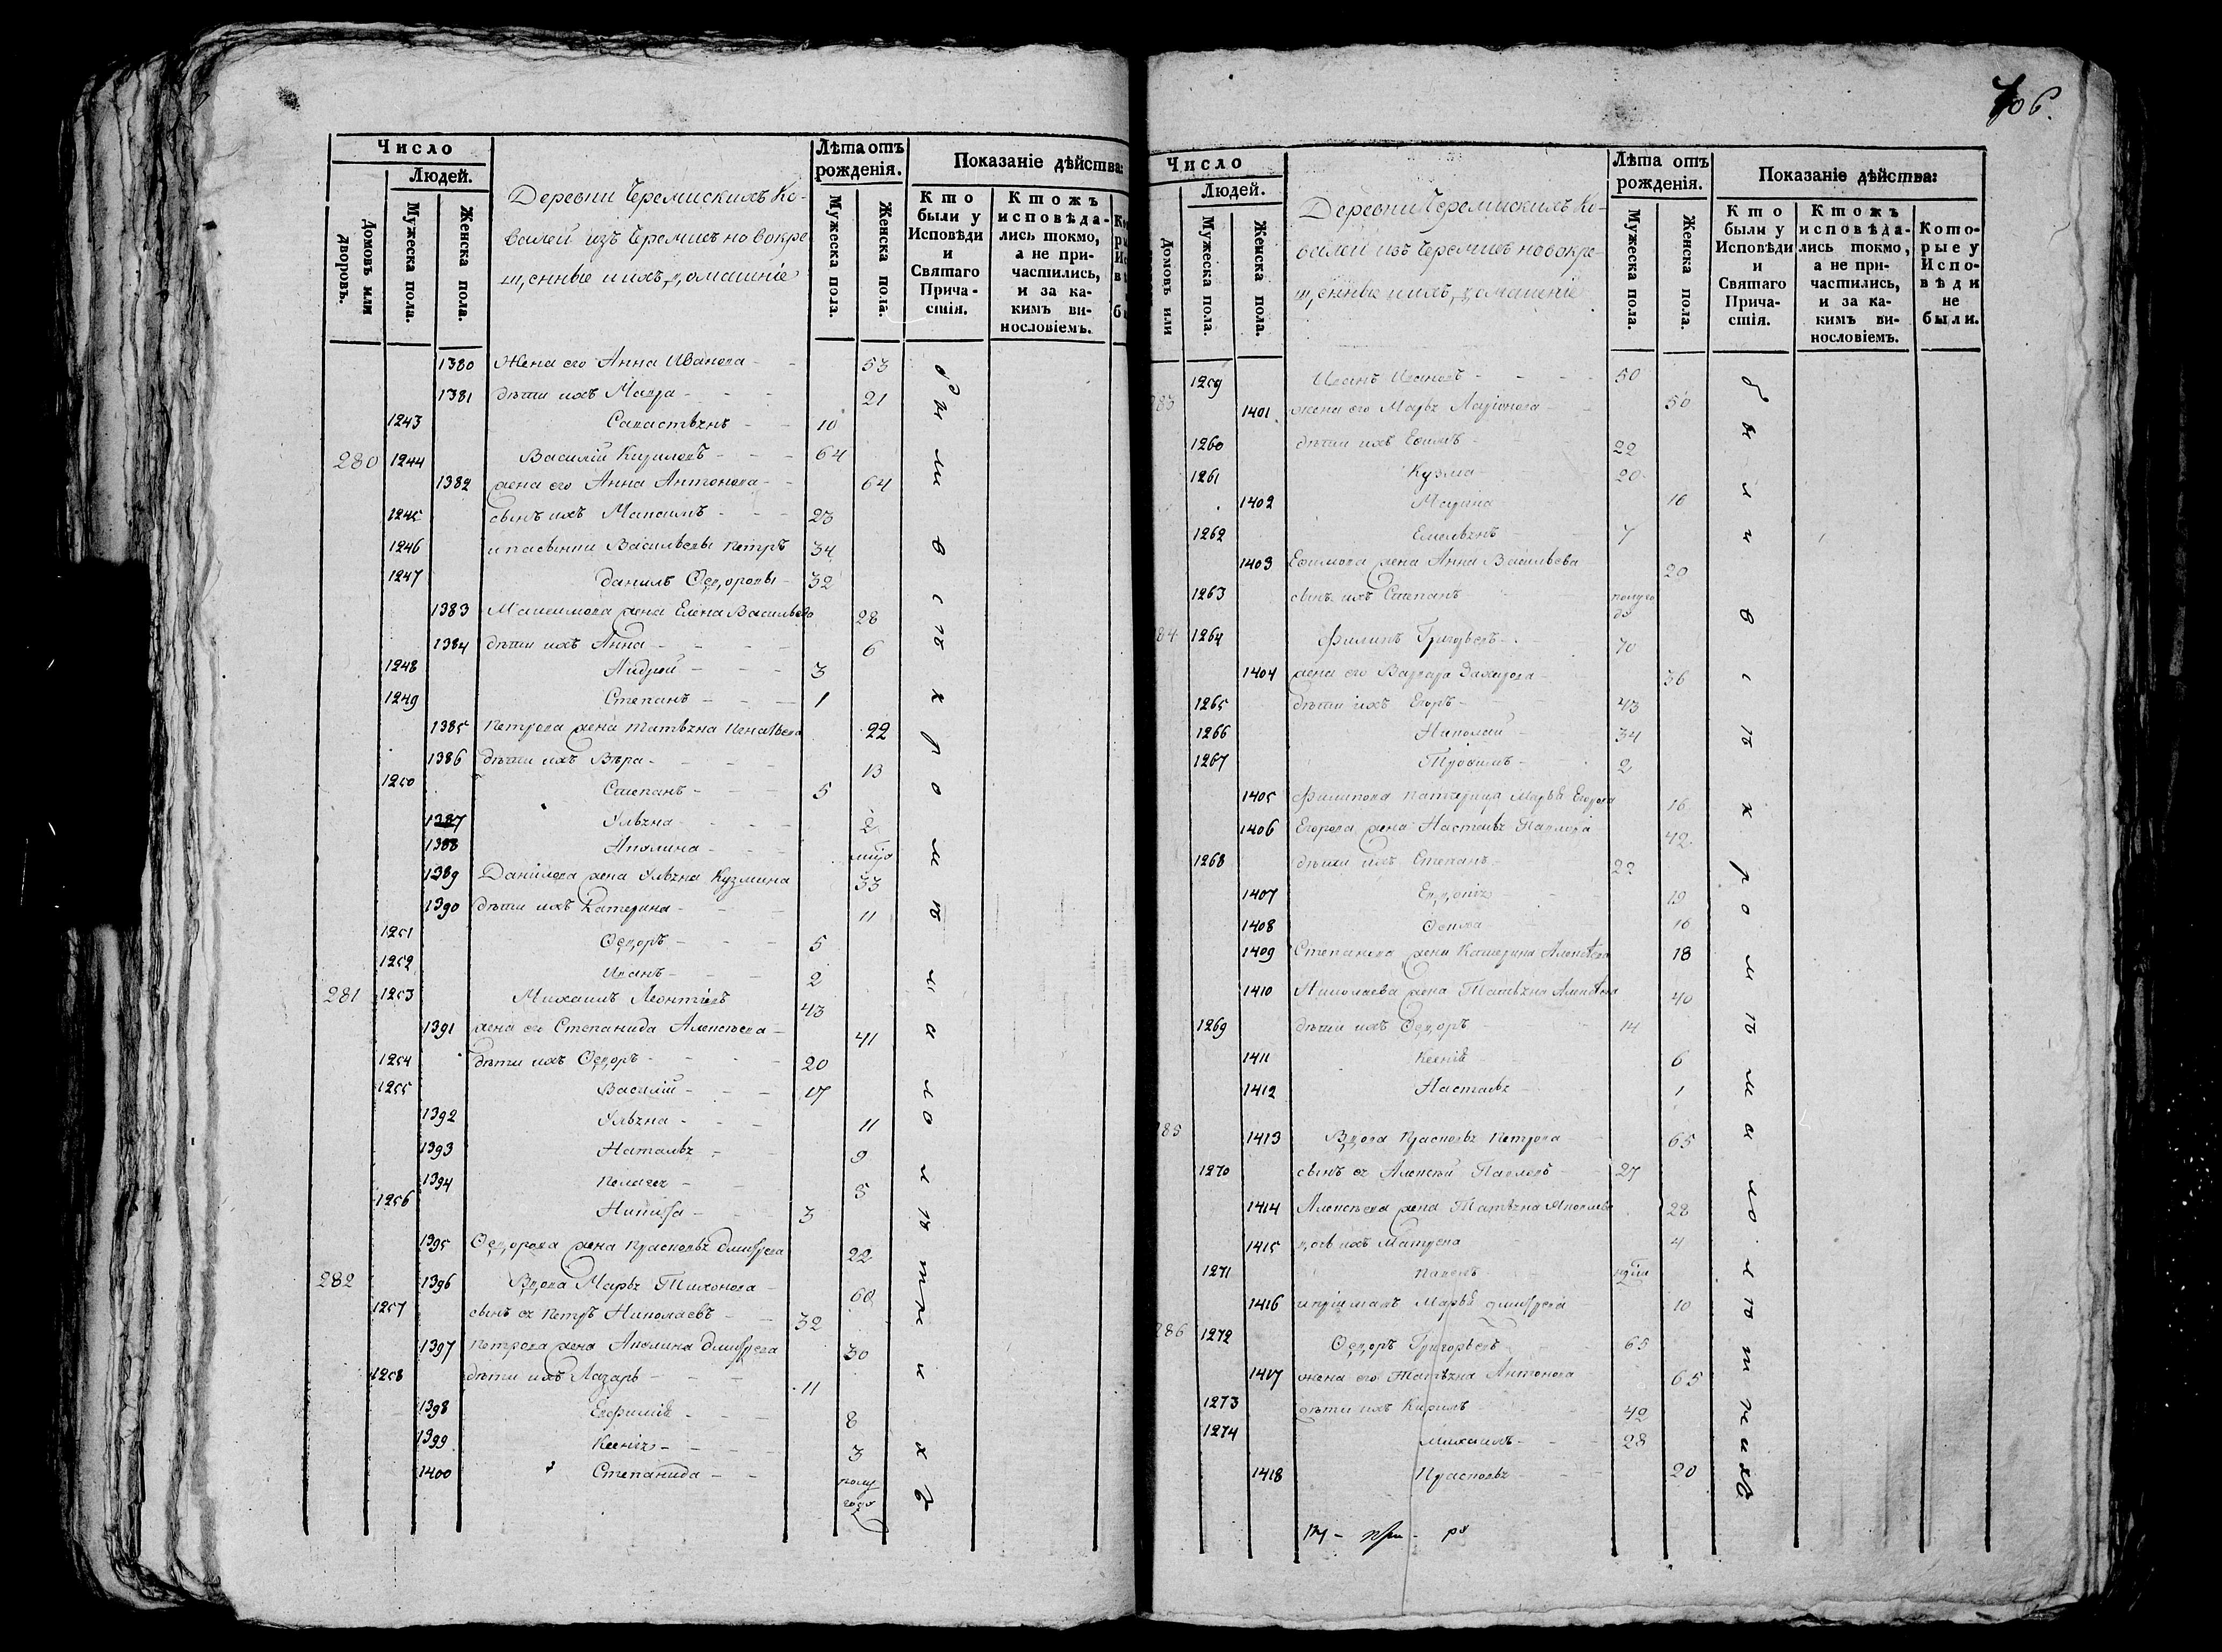 Число
Людей.
Домовъ или дворовъ.
Мужеска пола.
Женска пола.
Деревни Черемискихъ Ко-
валей изъ Черемисъ новокре
щенные и ихъ домашніе
Лѣта отъ рожденія.
Мужеска пола.
Женска пола.
Показаніе дѣйства:
Кто были у Исповѣди и Святаго Причастія.
Ктожъ исповѣдались токмо, а не причастились, и за какимъ винословіемъ.
1380 Жена его Анна Иванова - 53
1381 дѣти ихъ Мавра - 21
1243 Савастьянъ - 10
280 1244 Василій Кириловъ - 64
1382 жена его Анна Антонова - 64
1245 сынъ ихъ Максимъ - 23
1246 и пасынки Васильевы Петръ 34
1247 Данилъ Ѳедоровы - 32
1383 Максимова жена Елена Васильева 28
1384 дѣти ихъ Анна - 6
1248 Андрей - 3
1249 Степанъ - 1
1385 Петрова жена Татьяна 22
1386 дѣти ихъ Вѣра - 13
1250 Степанъ - 5
1387 Ульяна - 2
1388 Акилина -
1389 Данилова жена Ульяна Кузмина 33
1390 дѣти ихъ Катерина - 11
1251 Ѳедоръ - 5
1252 Иванъ - 2
281 1253 Михаилъ Леонтіевъ 43
1391 жена его Степанида Алексѣева - 41
1254 дѣти ихъ Ѳедоръ - 20
1255 Василій - 17
1392 Ульяна - 11
1393 Наталья - 9
1394 Пелагея - 5
1256 Никита - 3
1395 Ѳедорова жена Прасковья Дмитрева 22
282 1396 Вдова Марья Тихонова - 60
1257 сынъ ея Петръ Николаевъ - 32
1397 Петрова жена Акилина Дмитрева 30
1258 дѣти ихъ Лазарь - 11
1398 Евфимія - 8
1399 Ксенія - 3
1400 Степанида - полу года
были въсѣ кромѣ малолѣтнихъ
106.
Число
Людей.
Домовъ или
Мужеска пола.
Женска пола.
Деревни Черемискихъ Ко-
валей изъ Черемисъ новокре-
щенные и ихъ домашніе
Лѣта отъ рожденія.
Мужеска пола.
Женска пола.
Показаніе дѣйства:
Кто были у Исповѣди и Святаго Причастія.
Ктожъ исповѣдались токмо, а не причастились, и за какимъ винословіемъ.
Которые у Исповѣди не были.
83 1259 Иванъ Ивановъ - 50
1401 жена его Марья Ларіонова - 50
1260 дѣти ихъ Ефимъ - 22
1261 Кузма - 20
1402 Марина 16
1262 Емельянъ 7
1403 Ефимова жена Анна Васильева 20
1263 сынъ ихъ Степанъ полуго да
84 1264 Филипъ Григорьевъ - 70
1404 жена его Варвара Захарова 36
1265 дѣти ихъ Егоръ - 43
1266 Николай - 34
1267 Трофимъ - 2
1405 Филипова падчерица Марья Егорова 16
1406 Егорова жена Настасья Павлова 42
1268 дѣти ихъ Степанъ - 22
1407 Евдокія 19
1408 16
1409 Степанова жена Катерина Алексѣева 18
1410 Николаева жена Татьяна Алексѣева 40
1269 дѣти ихъ Ѳедоръ 14
1411 Ксенія 6
1412 Настасья 1
85 1413 Вдова Прасковья Петрова 65
1270 сынъ ея Алексѣй Павловъ 27
1414 Алексѣева жена Татьяна Яковлева 28
1415 дочь ихъ Матрена 4
1271
1416 Марья Дмитрева 10
286 1272 Ѳедоръ Григорьевъ 65
1417 жена его Татьяна Антонова 65
1273 дѣти ихъ Кирилъ 42
1274 Михаилъ - 28
1418 Прасковья 20
были въсѣ кромѣ малолѣтнихъ